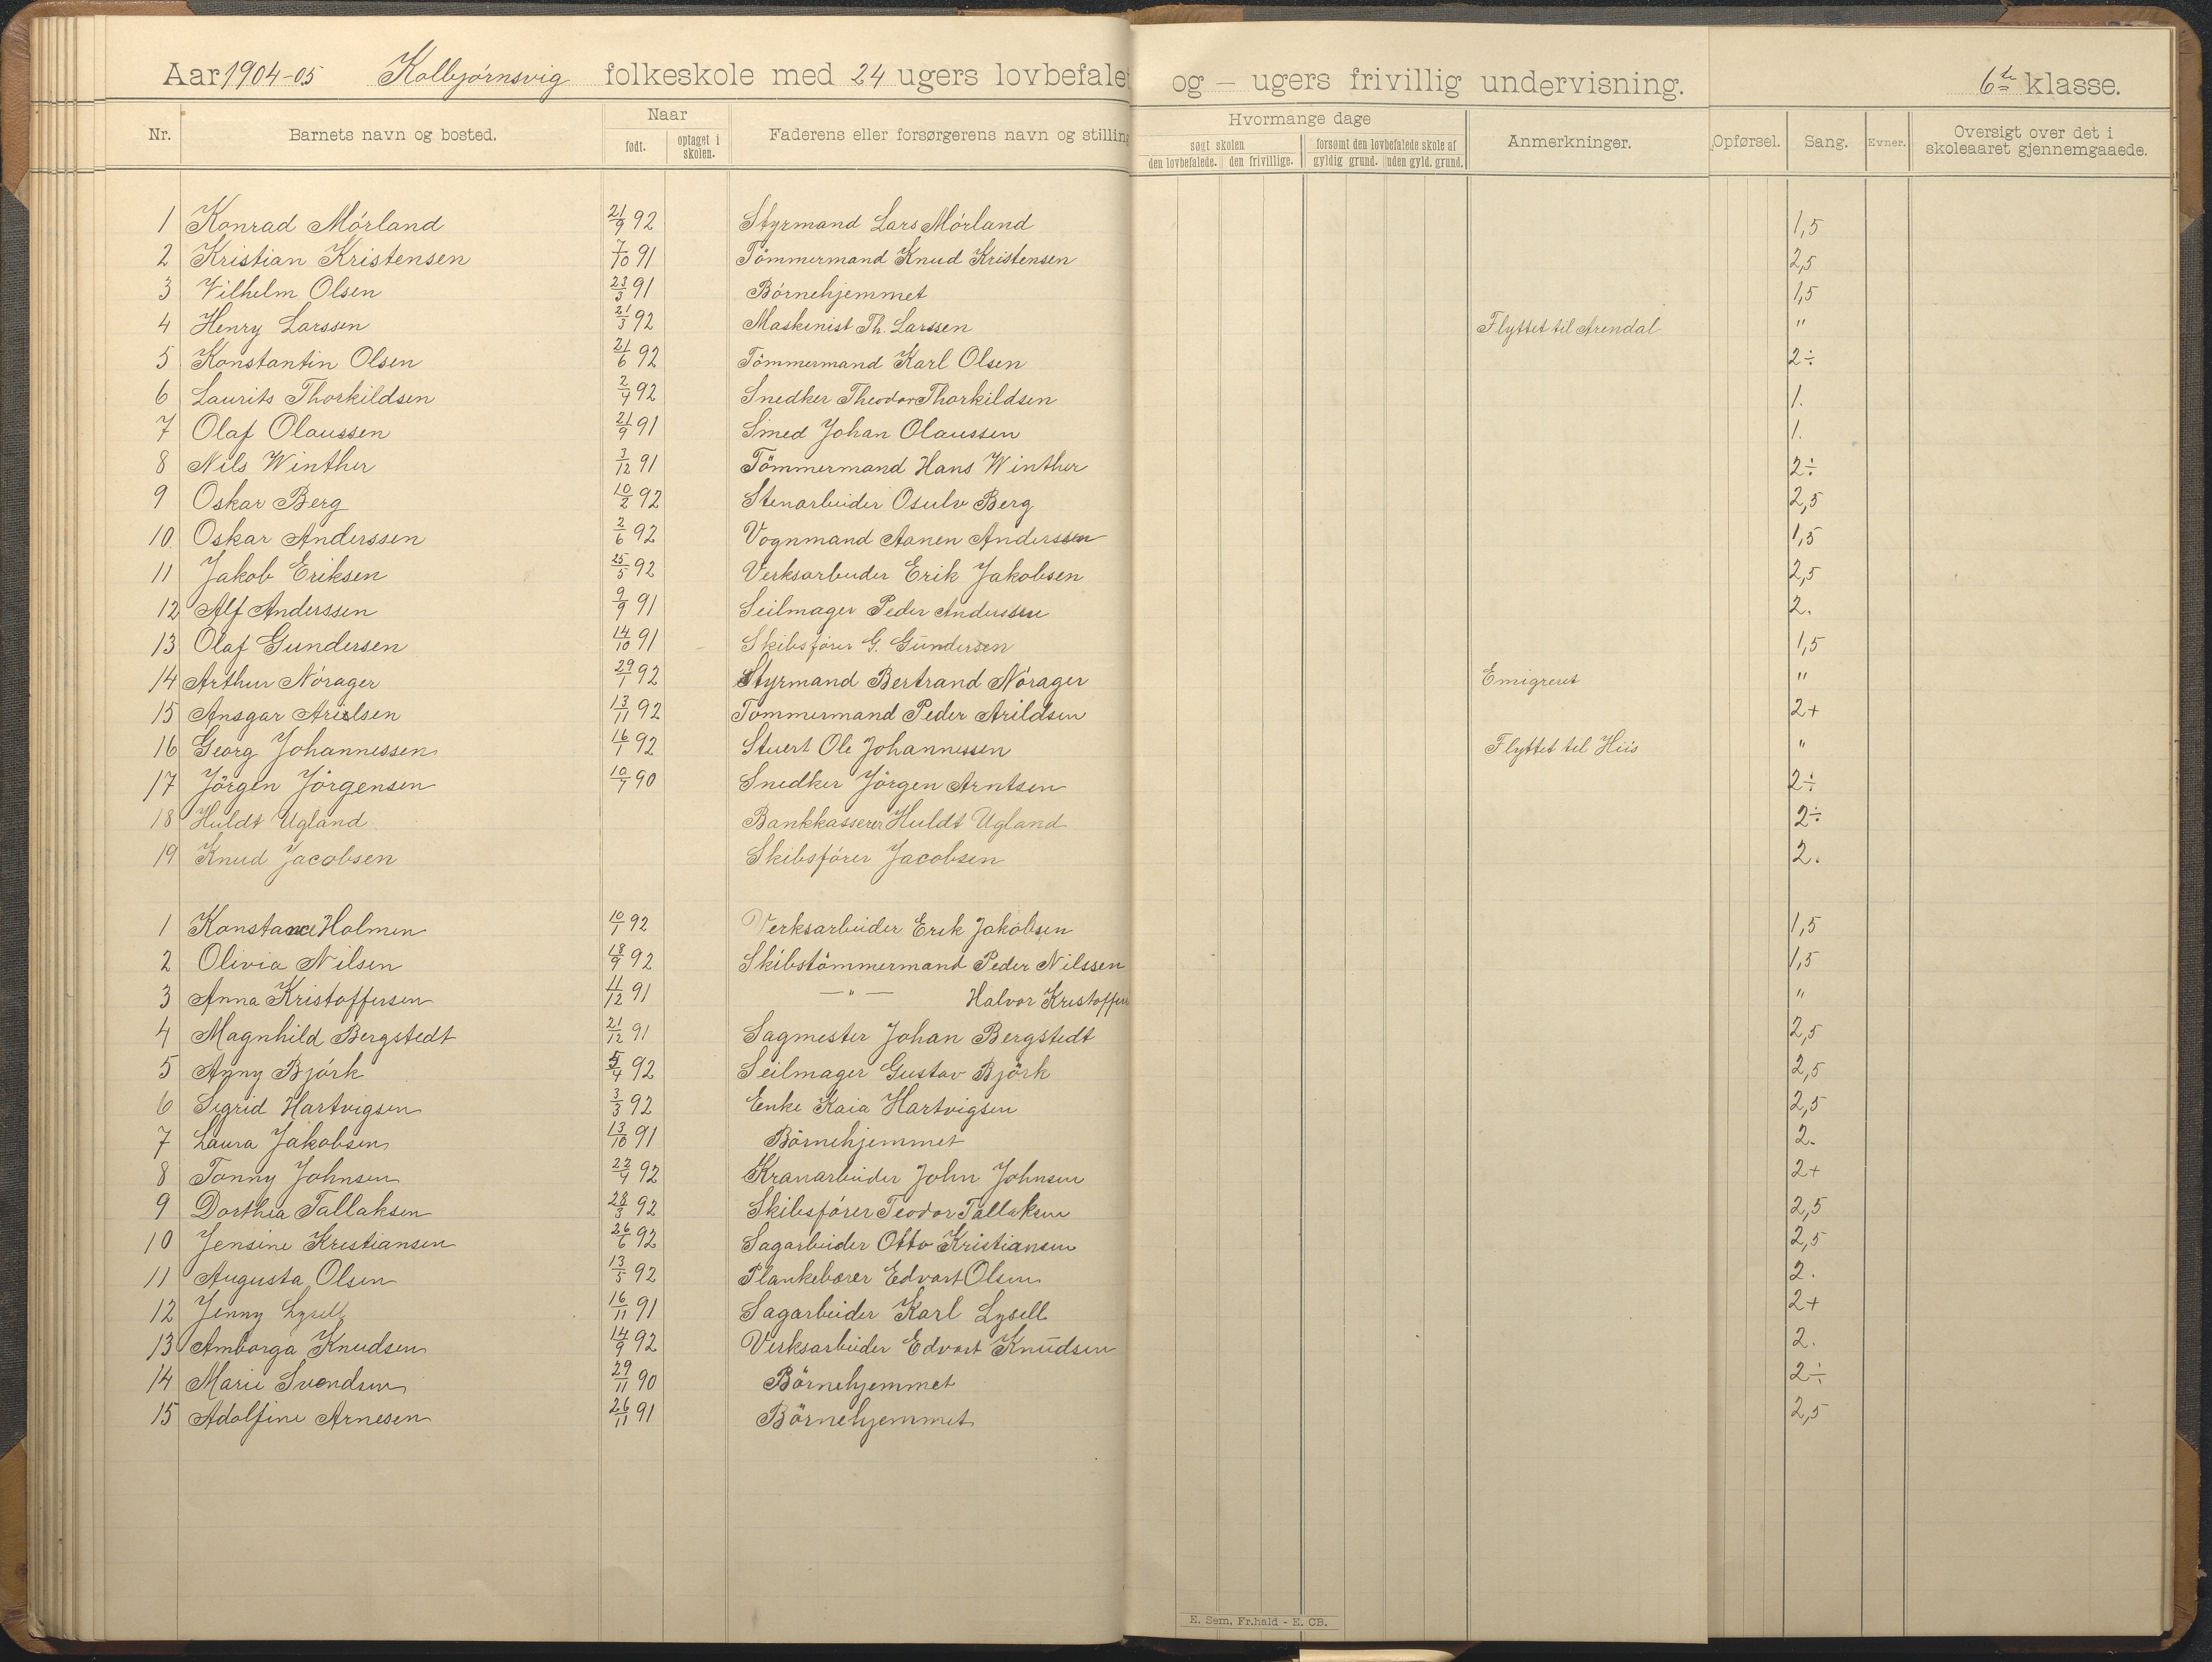 Aar 1904-05 Kolbjörnsvig folkeskole med 24 ugers lovbefalet og – ugers frivillig undervisning. 6te klasse.
Nr. Barnets navn og bosted. Naar født. optaget i skolen. Faderens eller forsørgerens navn og stilling Hvormange dage søgt skolen den lovbefalede. den frivillige. forsømt den lovbefalede skole af gyldig grund. uden gyld. grund. Anmerkninger. Opførsel. Sang. Evner. Oversigt over det i skoleaaret gjennemgaaede.
1 Konrad Mörland 21/9 92 Styrmand Lars Mörland 1,5
2 Kristian Kristensen 7/10 91 Tömmermand Knud Kristensen 2,5
3 Vilhelm Olsen 23/3 91 Börnehjemmet 1,5
4 Henry Larssen 21/3 92 Maskinist Th. Larssen Flyttet til Arendal "
5 Konstantin Olsen 21/6 92 Tömmermand Karl Olsen 2÷
6 Laurits Thorkildsen 2/4 92 Snedker Theodor Thorkildsen 1.
7 Olaf Olaussen 21/9 91 Smed Johan Olaussen 1.
8 Nils Winther 3/12 91 Tömmermand Hans Winther 2÷
9 Oskar Berg 10/2 92 Stenarbeider Osulv Berg 2,5
10 Oskar Anderssen 2/6 92 Vognmand Aanen Anderssen 1,5
11 Jakob Eriksen 25/5 92 Verksarbeider Erik Jakobsen 2,5
12 Alf Anderssen 9/9 91 Seilmager Peder Anderssen 2.
13 Olaf Gundersen 14/10 91 Skibsförer G. Gundersen 1,5
14 Arthur Nörager 29/1 92 Styrmand Bertrand Nörager Emigreret "
15 Ansgar Arilsen 13/11 92 Tommermand Peder Arildsen 2+
16 Georg Johannessen 16/1 92 Stuert Ole Johannessen Flyttet til Hiis "
17 Jörgen Jörgensen 10/7 90 Snedker Jörgen Arntsen 2÷
18 Huldt Ugland Bankkasserer Huldt Ugland 2÷
19 Knud Jacobsen Skibsförer Jacobsen 2.
1 Konstance Holmen 10/1 92 Verksarbeider Erik Jakobsen 1,5
2 Olivia Nilsen 18/9 92 Skibstömmermand Peder Nilssen 1,5
3 Anna Kristoffersen 11/12 91 — " — Halvor Kristoffers "
4 Magnhild Bergstedt 21/12 91 Sagmester Johan Bergstedt 2,5
5 Anny Björk 5/4 92 Seilmager Gustav Björk 2,5
6 Sigrid Hartvigsen 3/3 92 Enke Kaia Hartvigsen 2,5
7 Laura Jakobsen 13/10 91 Börnehjemmet 2.
8 Tonny Johnsen 22/4 92 Kranarbeider John Johnsen 2+
9 Dorthea Tallaksen 28/3 92 Skibsförer Teodor Tallaksen 2,5
10 Jensine Kristiansen 26/6 92 Sagarbeider Otto Kristiansen 2,5
11 Augusta Olsen 13/5 92 Plankebærer Edvart Olsen 2.
12 Jenny Lysell 16/11 91 Sagarbeider Karl Lysell 2+
13 Amborga Knudsen 14/9 92 Verksarbeider Edvart Knudsen 2.
14 Marie Svendsen 29/11 90 Börnehjemmet 2÷
15 Adolfine Arnesen 26/11 91 Börnehjemmet 2,5
E. Sem, Fr.hald - E. CB.